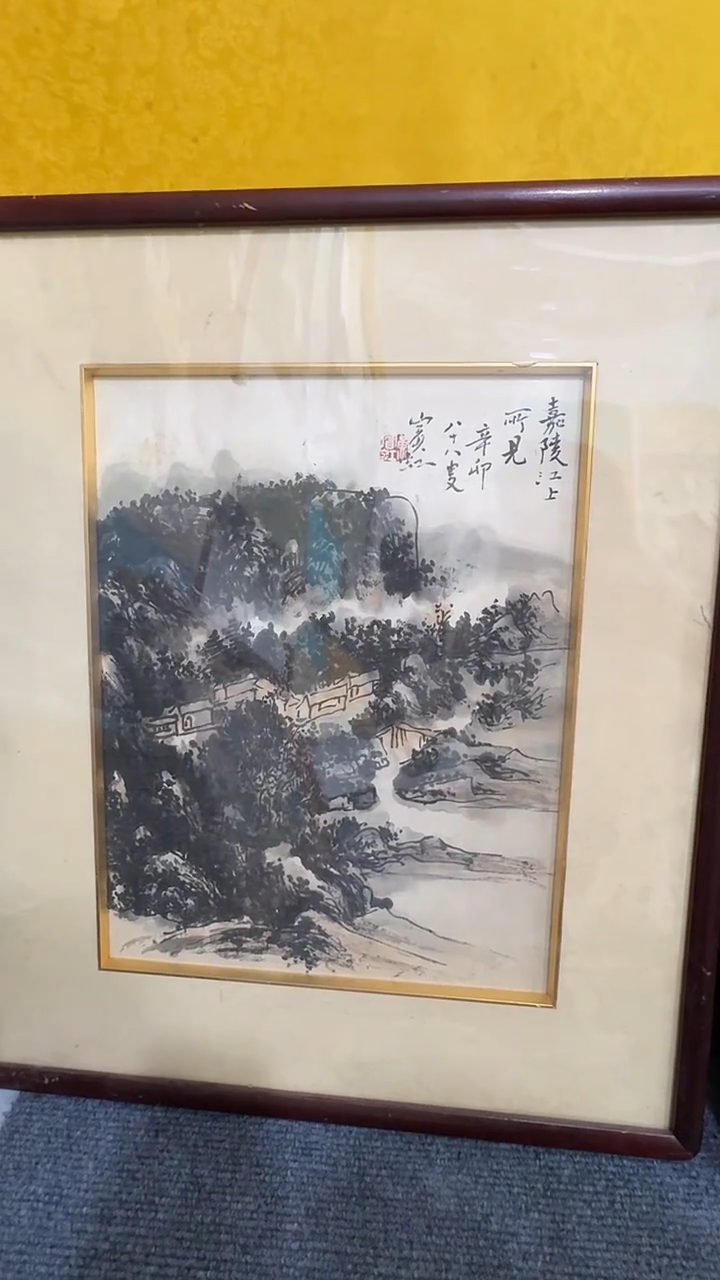 嘉陵江上
所見
辛卯
八十八叟
賓虹